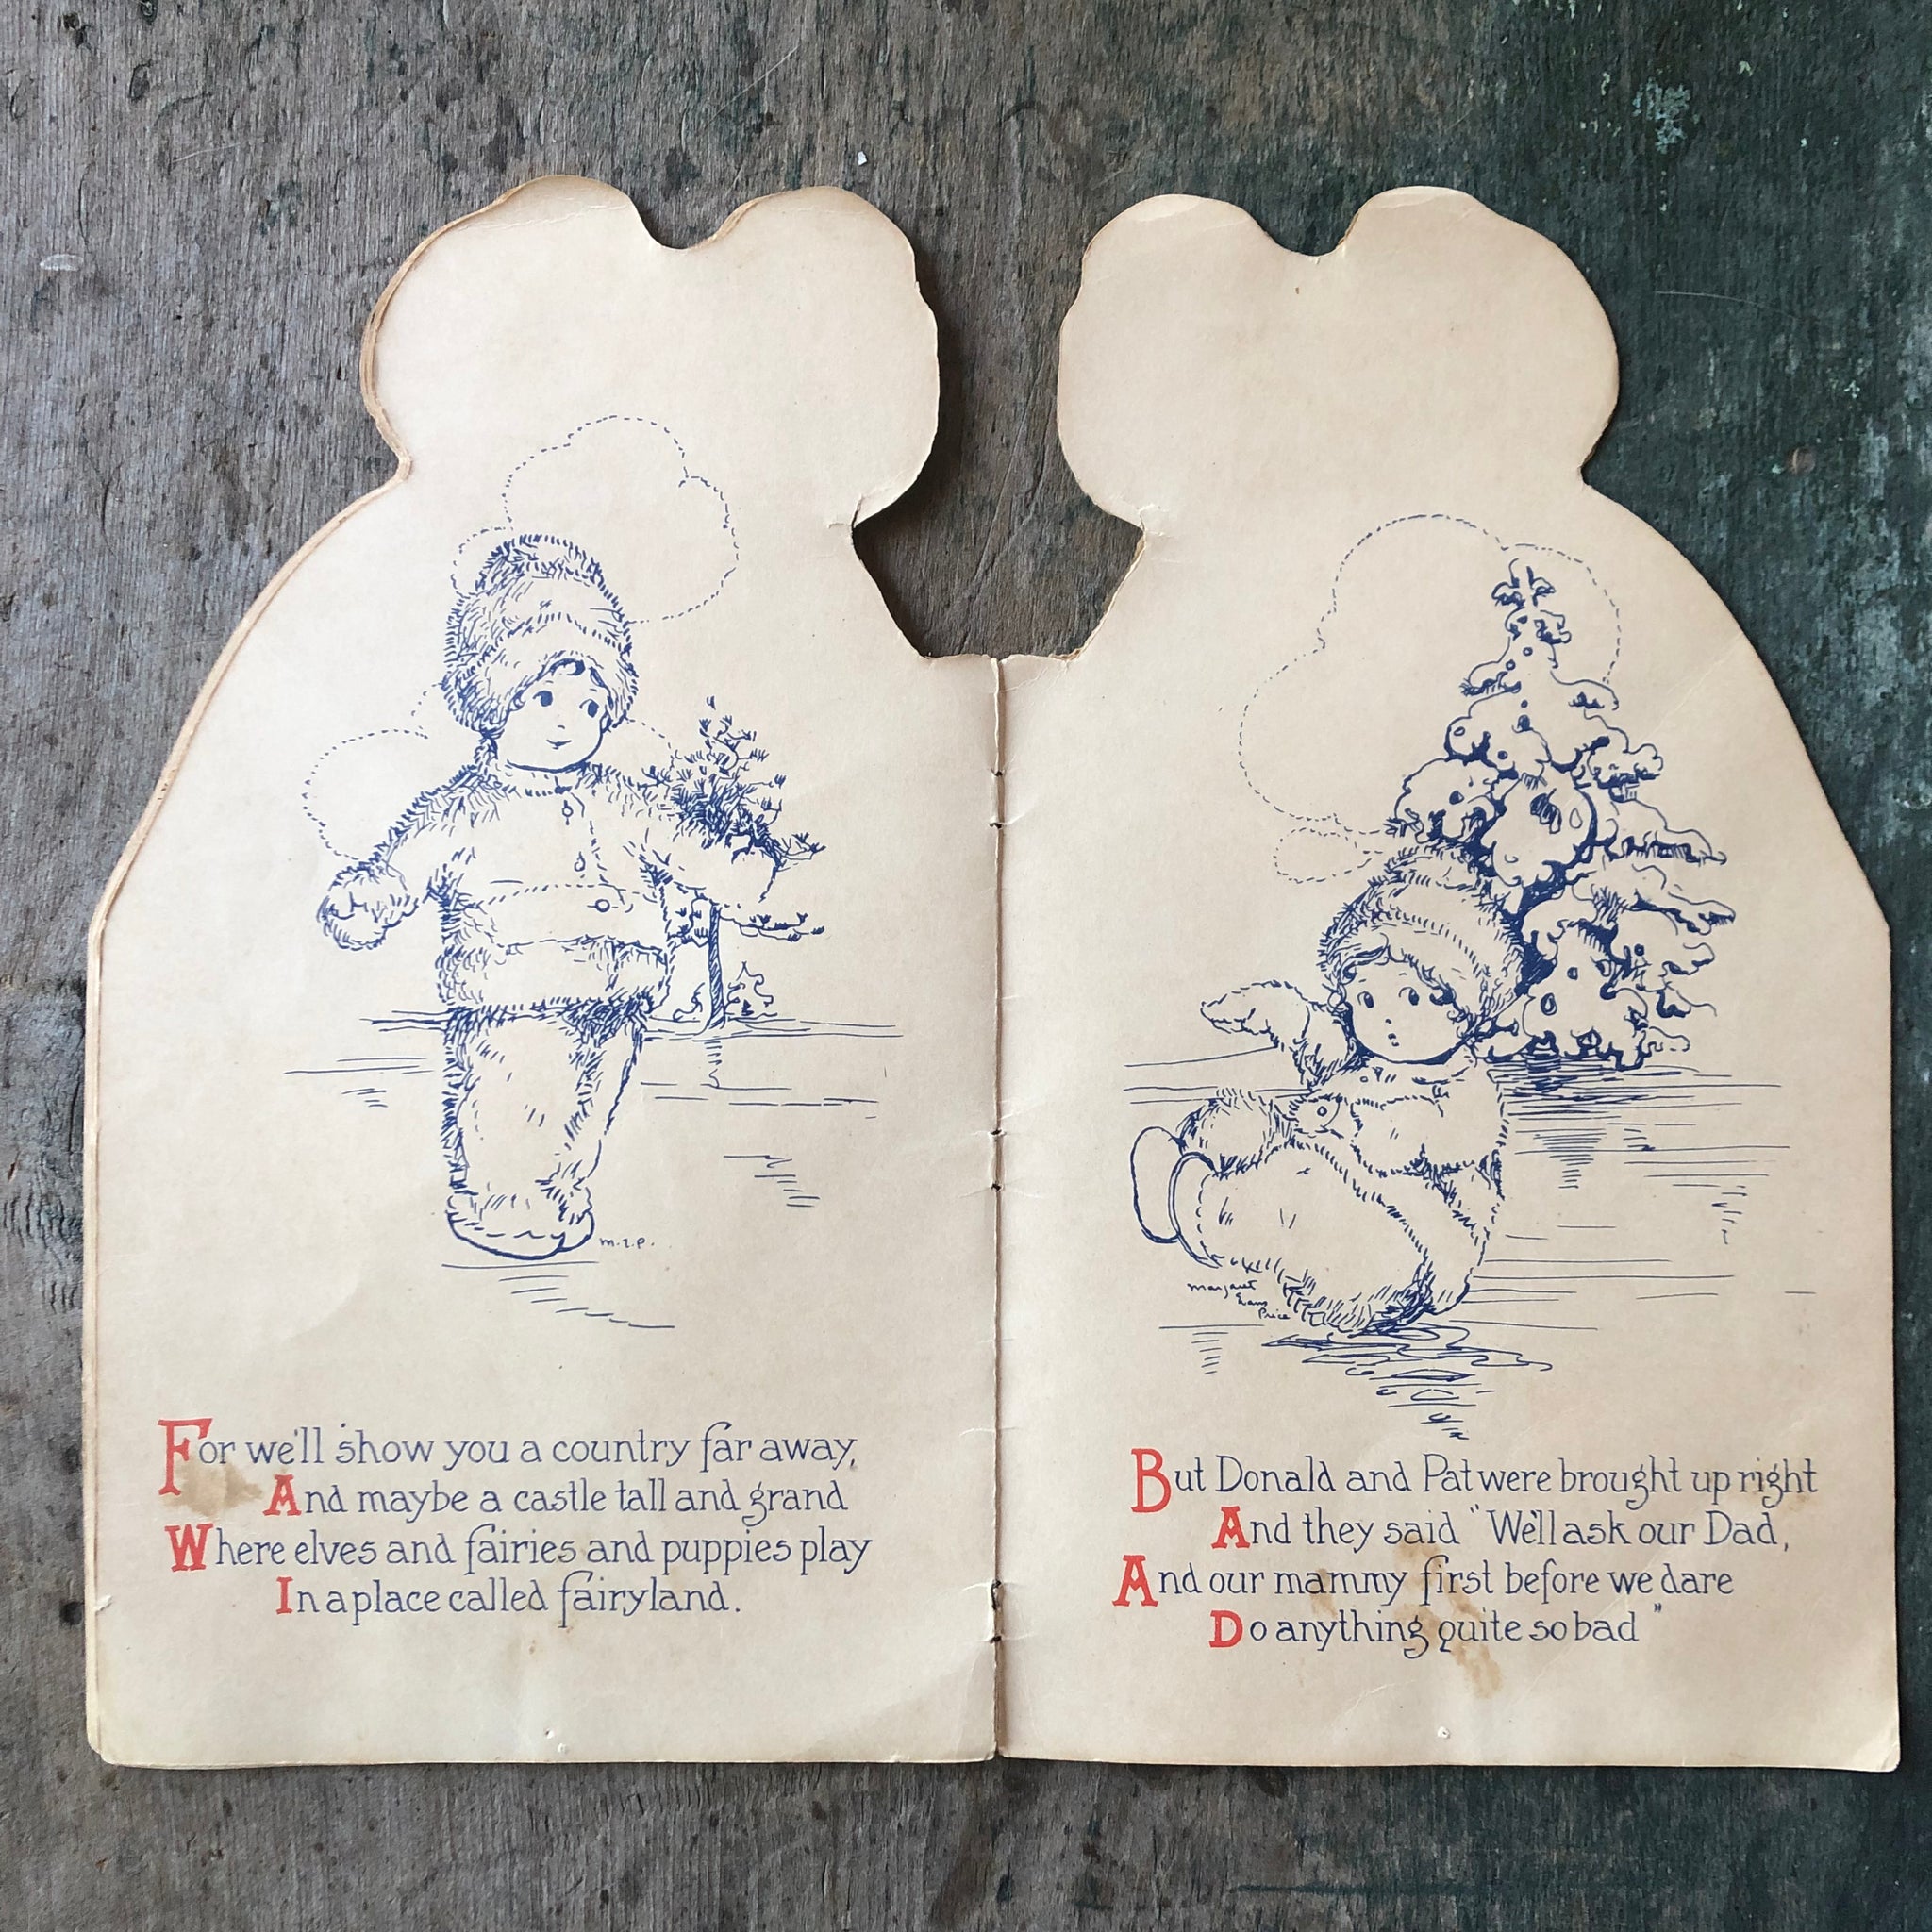 m.E.P.
For we'll show you a country far away,
And maybe a castle tall and grand
Where elves and fairies and puppies play
In a place called fairyland.
Margaret
Evans
Price
But Donald and Pat were brought up right
And they said "We'll ask our Dad,
And our mammy first before we dare
Do anything quite so bad"